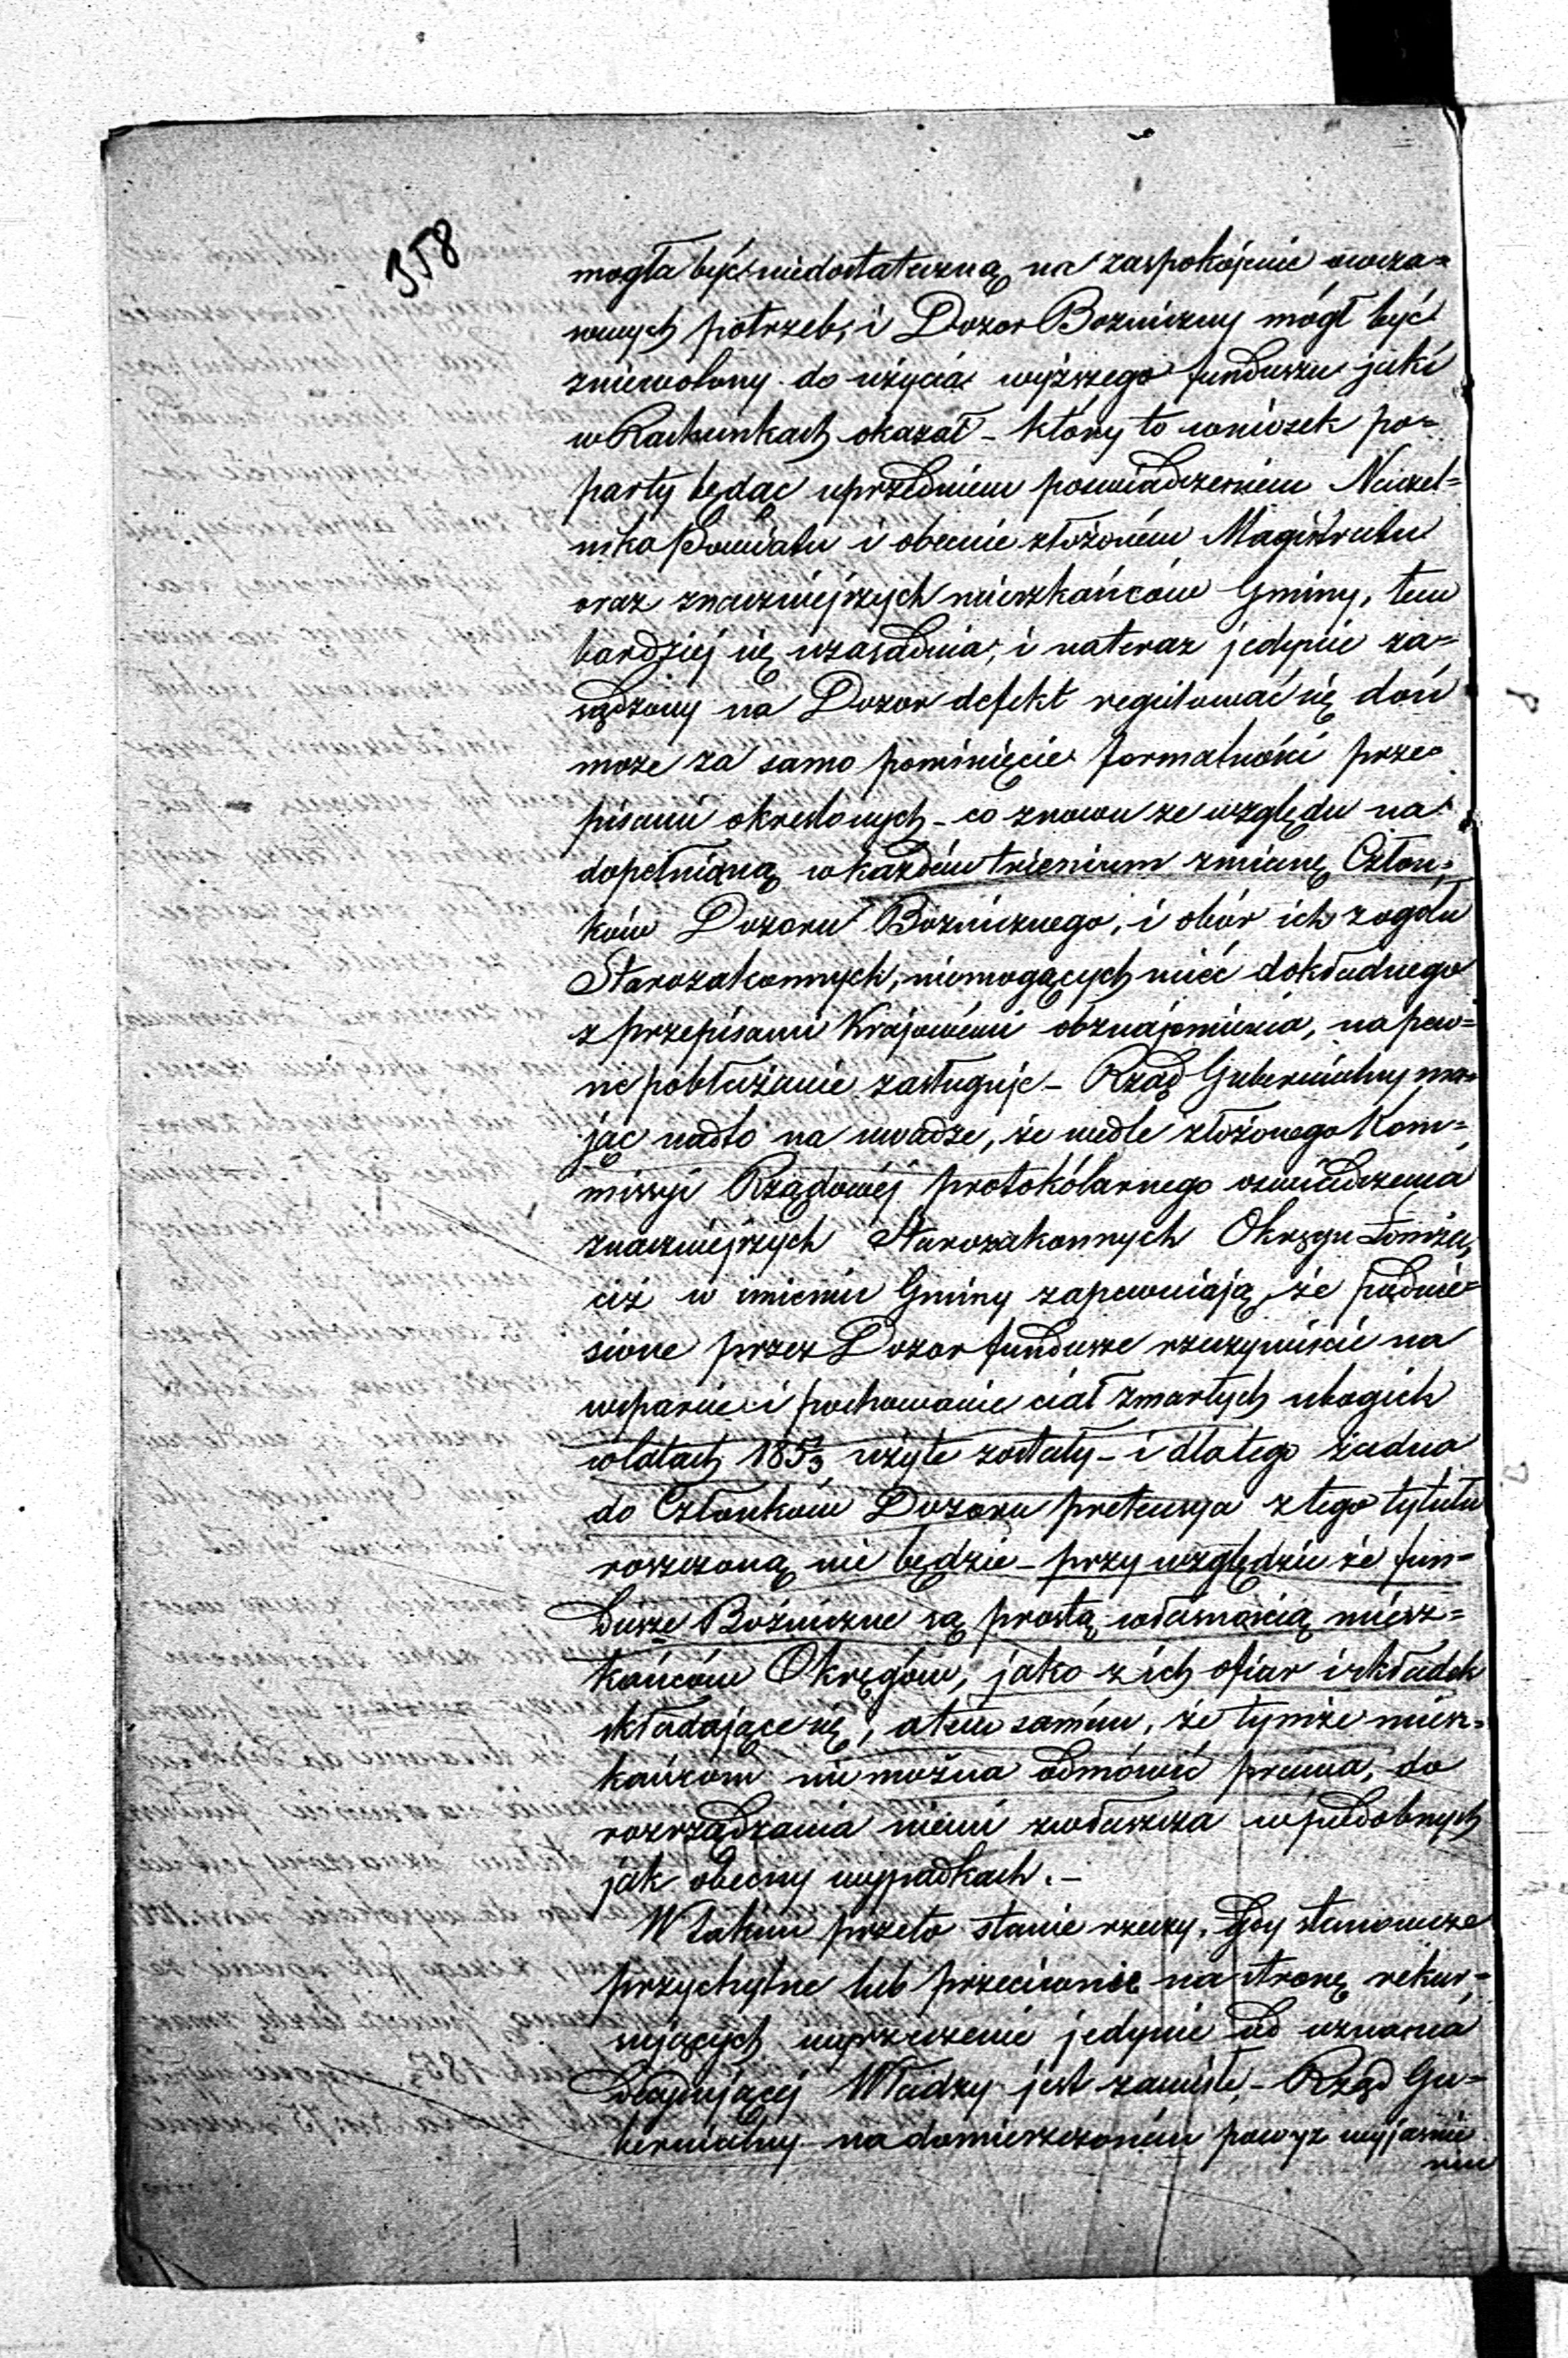 358
mogła być niedostateczną na zaspokojenie owcza=
sowych potrzeb, i Dozor Bożniczny mógł być
zniewolony do użycia wyższego funduszu jaki
w Rachunkach okazał – który to wniosek po=
party będąc uprzedniem poswiadczeniem Naczel=
nika Powiatu i obecnie złożoném Magistratu
oraz znaczniejszych mieszkańców Gminy, tem
bardziej się uzasadnia, i nateraz jedynie za=
sądzony na Dozor defekt regulować się doń
może za samo pominięcie formalności prze=
pisami okreslonych – co znowu ze względu na
dopełnianą w każdém trienium zmianę Człon=
ków Dozoru Bożnicznego, i obór ich z ogołu
Starozakonnych, niemogących mieć dokładnego
z przepisami Krajowémi obznajmienia, na pew=
ne pobłażanie zasługuje – Rząd Gubernialny ma=
jąc nadto na uwadze, że wedle złożonego Kom=
missyi Rządowéj protokólarnego oswiadczenia
znaczniejszych Starozakonnych Okręgu Łomża,
ciż w imieniu Gminy zapewniają, że podnie=
sione przez Dozor fundusze rzeczywiście na
wsparcie i pochowanie ciał zmarłych ubogich
w latach 185 2/3 użyte zostały – i dlatego żadna
do Członków Dozoru pretensya z tego tytułu
roszczoną nie będzie – przy względzie że fun=
dusze Bożniczne są prostą własnością miesz=
kańców Okręgów, jako z ich ofiar i składek
składające się, a tém samém, że tymże miesz=
kańcom nie można odmówić prawa, do
rozrządzania niemi zwłaszcza w podobnych
jak obecny wypadkach. –
W takim przeto stanie rzeczy, gdy stanowcze
przychylne lub przeciwnie na stronę rekur=
sujących wyrzeczenie jedynie od uznania
decydującej Władzy jest zawisłe, – Rząd Gu=
bernialny na domieszczoném powyż wyjasnie
niu